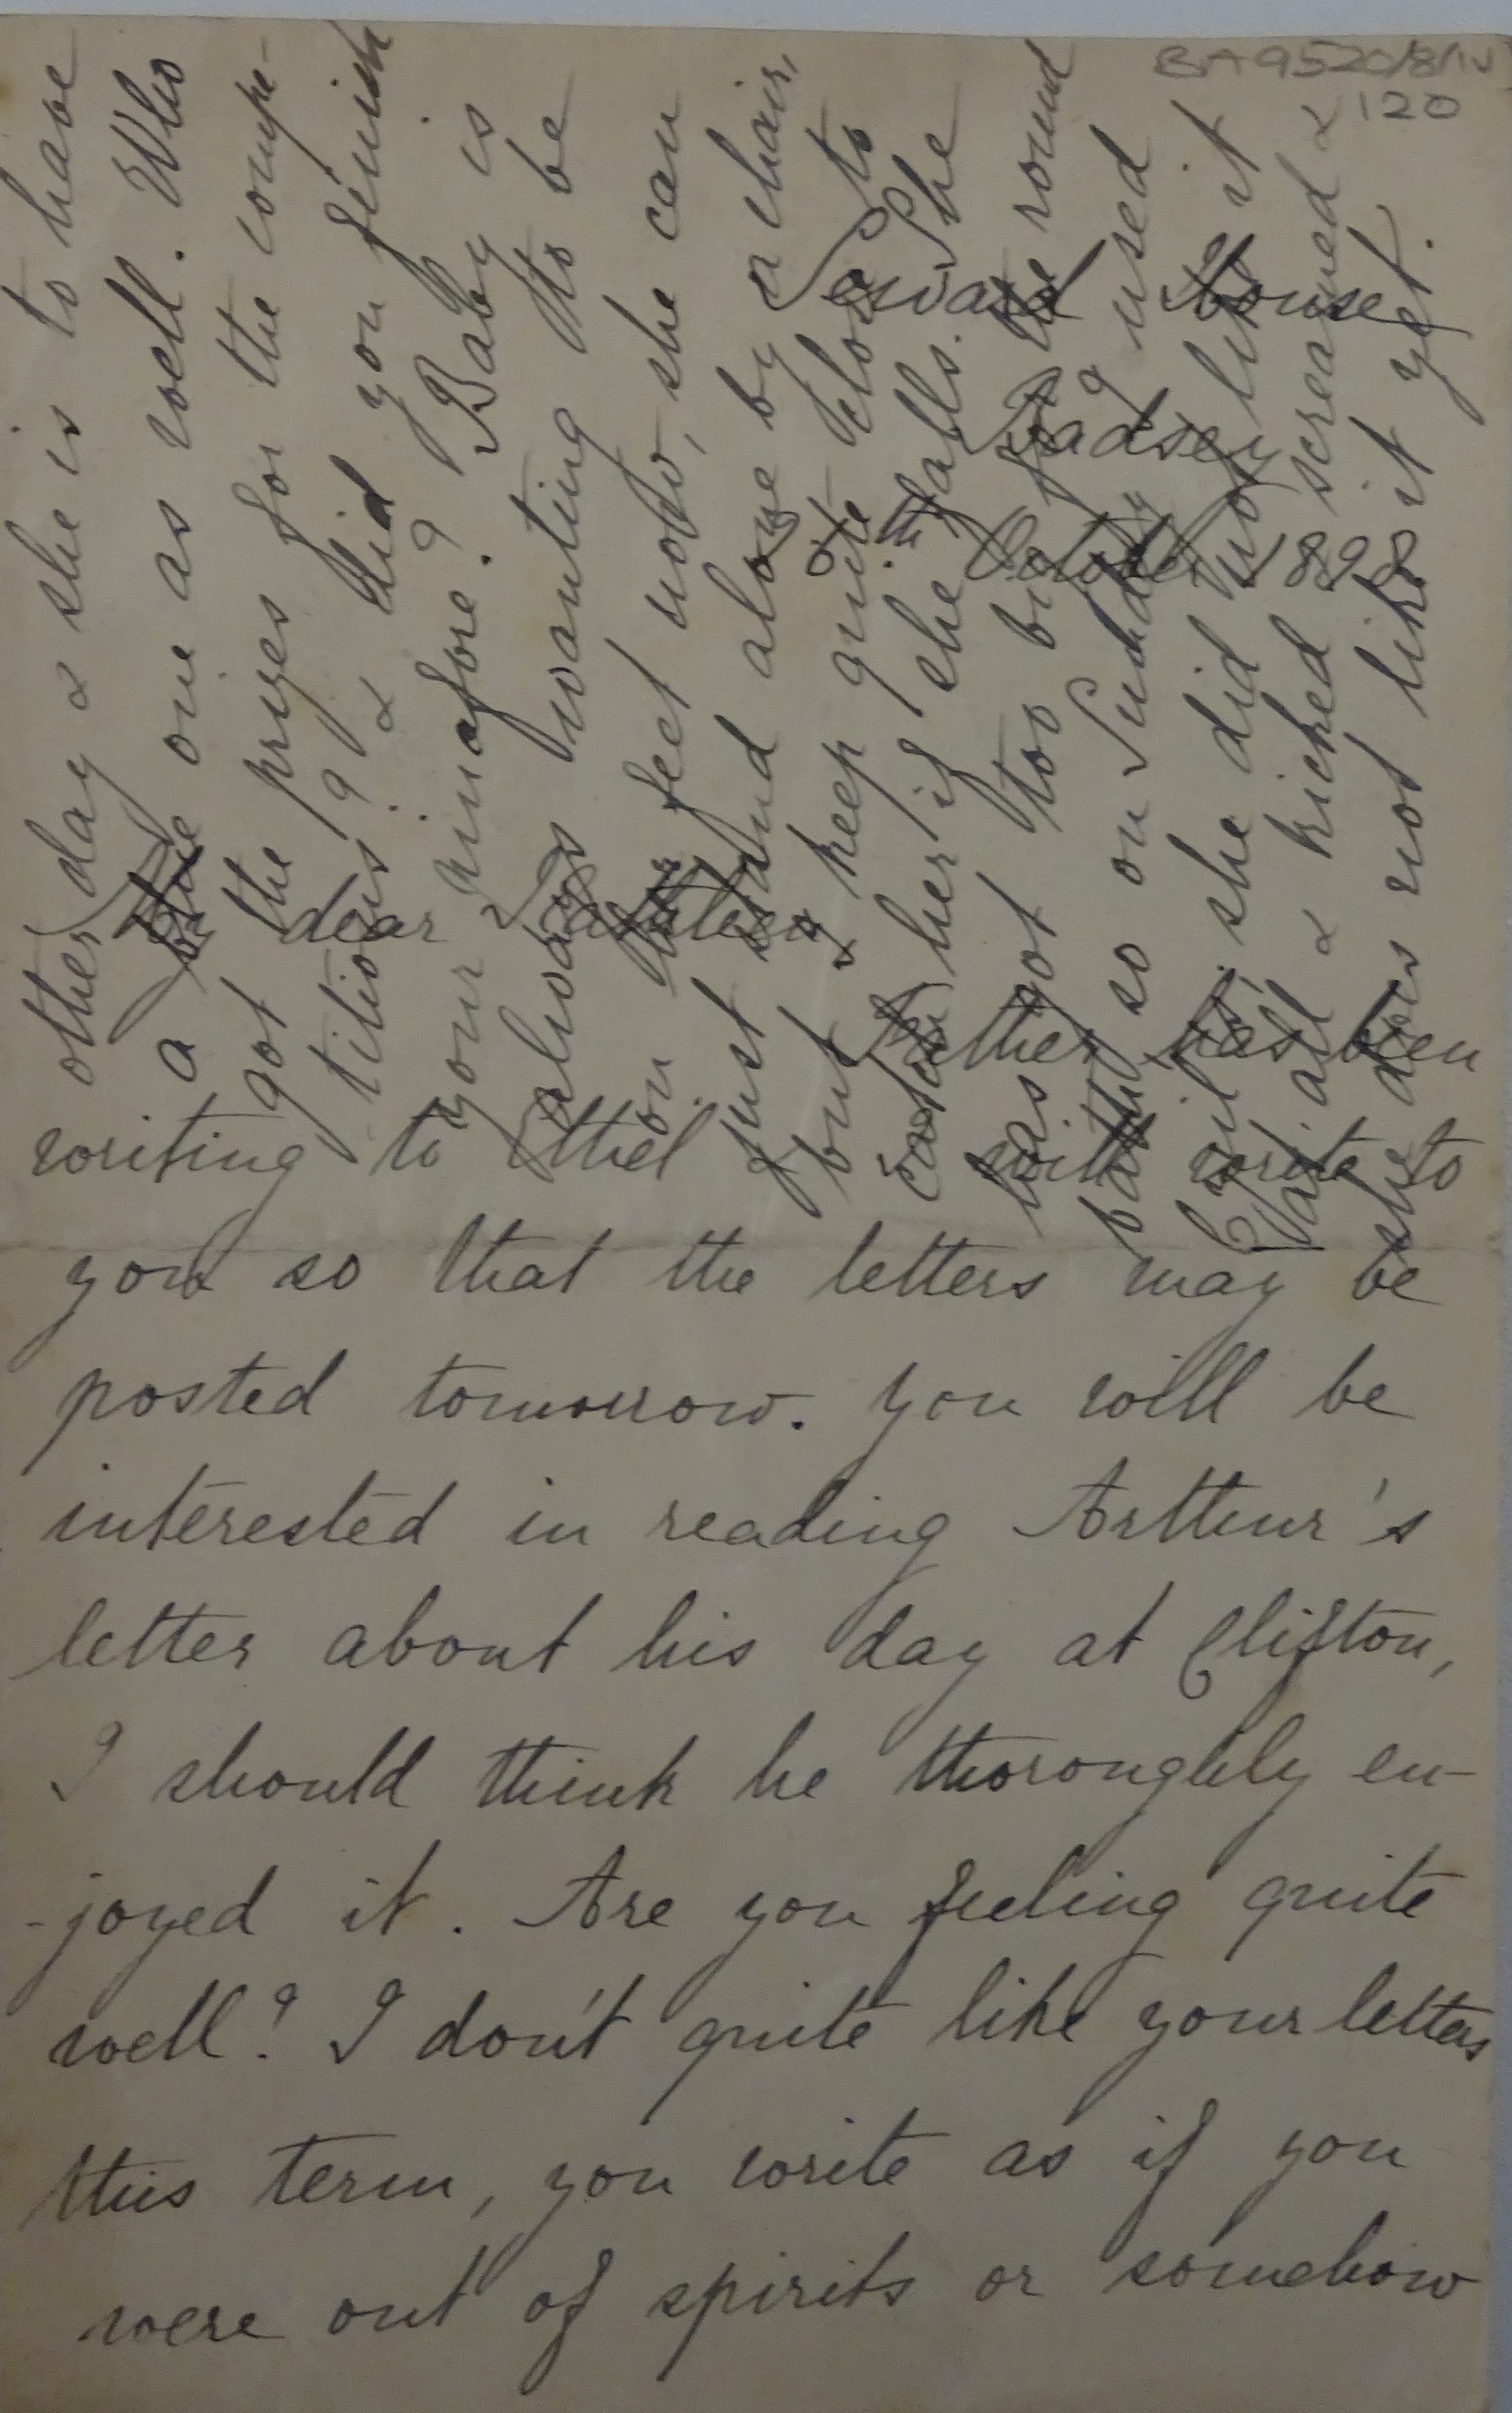 BA9520/8/iv
120
Seward House
Badsey
6.th October 1898
My dear Kathleen
Father has been
writing to Ethel I will write to
you so that the letters may be
posted tomorrow. You will be
interested in reading Arthur's
letter about his day at Clifton,
I should think he thoroughly en-
-joyed it. Are you feeling quite
well? I don't quite like your letters
this term, you write as if you
were out of spirits or somehow
other day & she is to have
a blue one as well. Who
got the prizes for the compe-
titions? & did you finish
your pinafore? Baby is
always wanting to be
on her feet now, she can
just stand alone by a chair,
but I keep quite close to
catch her if she falls. She
has got too big for the round
bath so on Sunday I used
Cyril's, she did not like it
at all & kicked & screamed &
she does not like it yet.